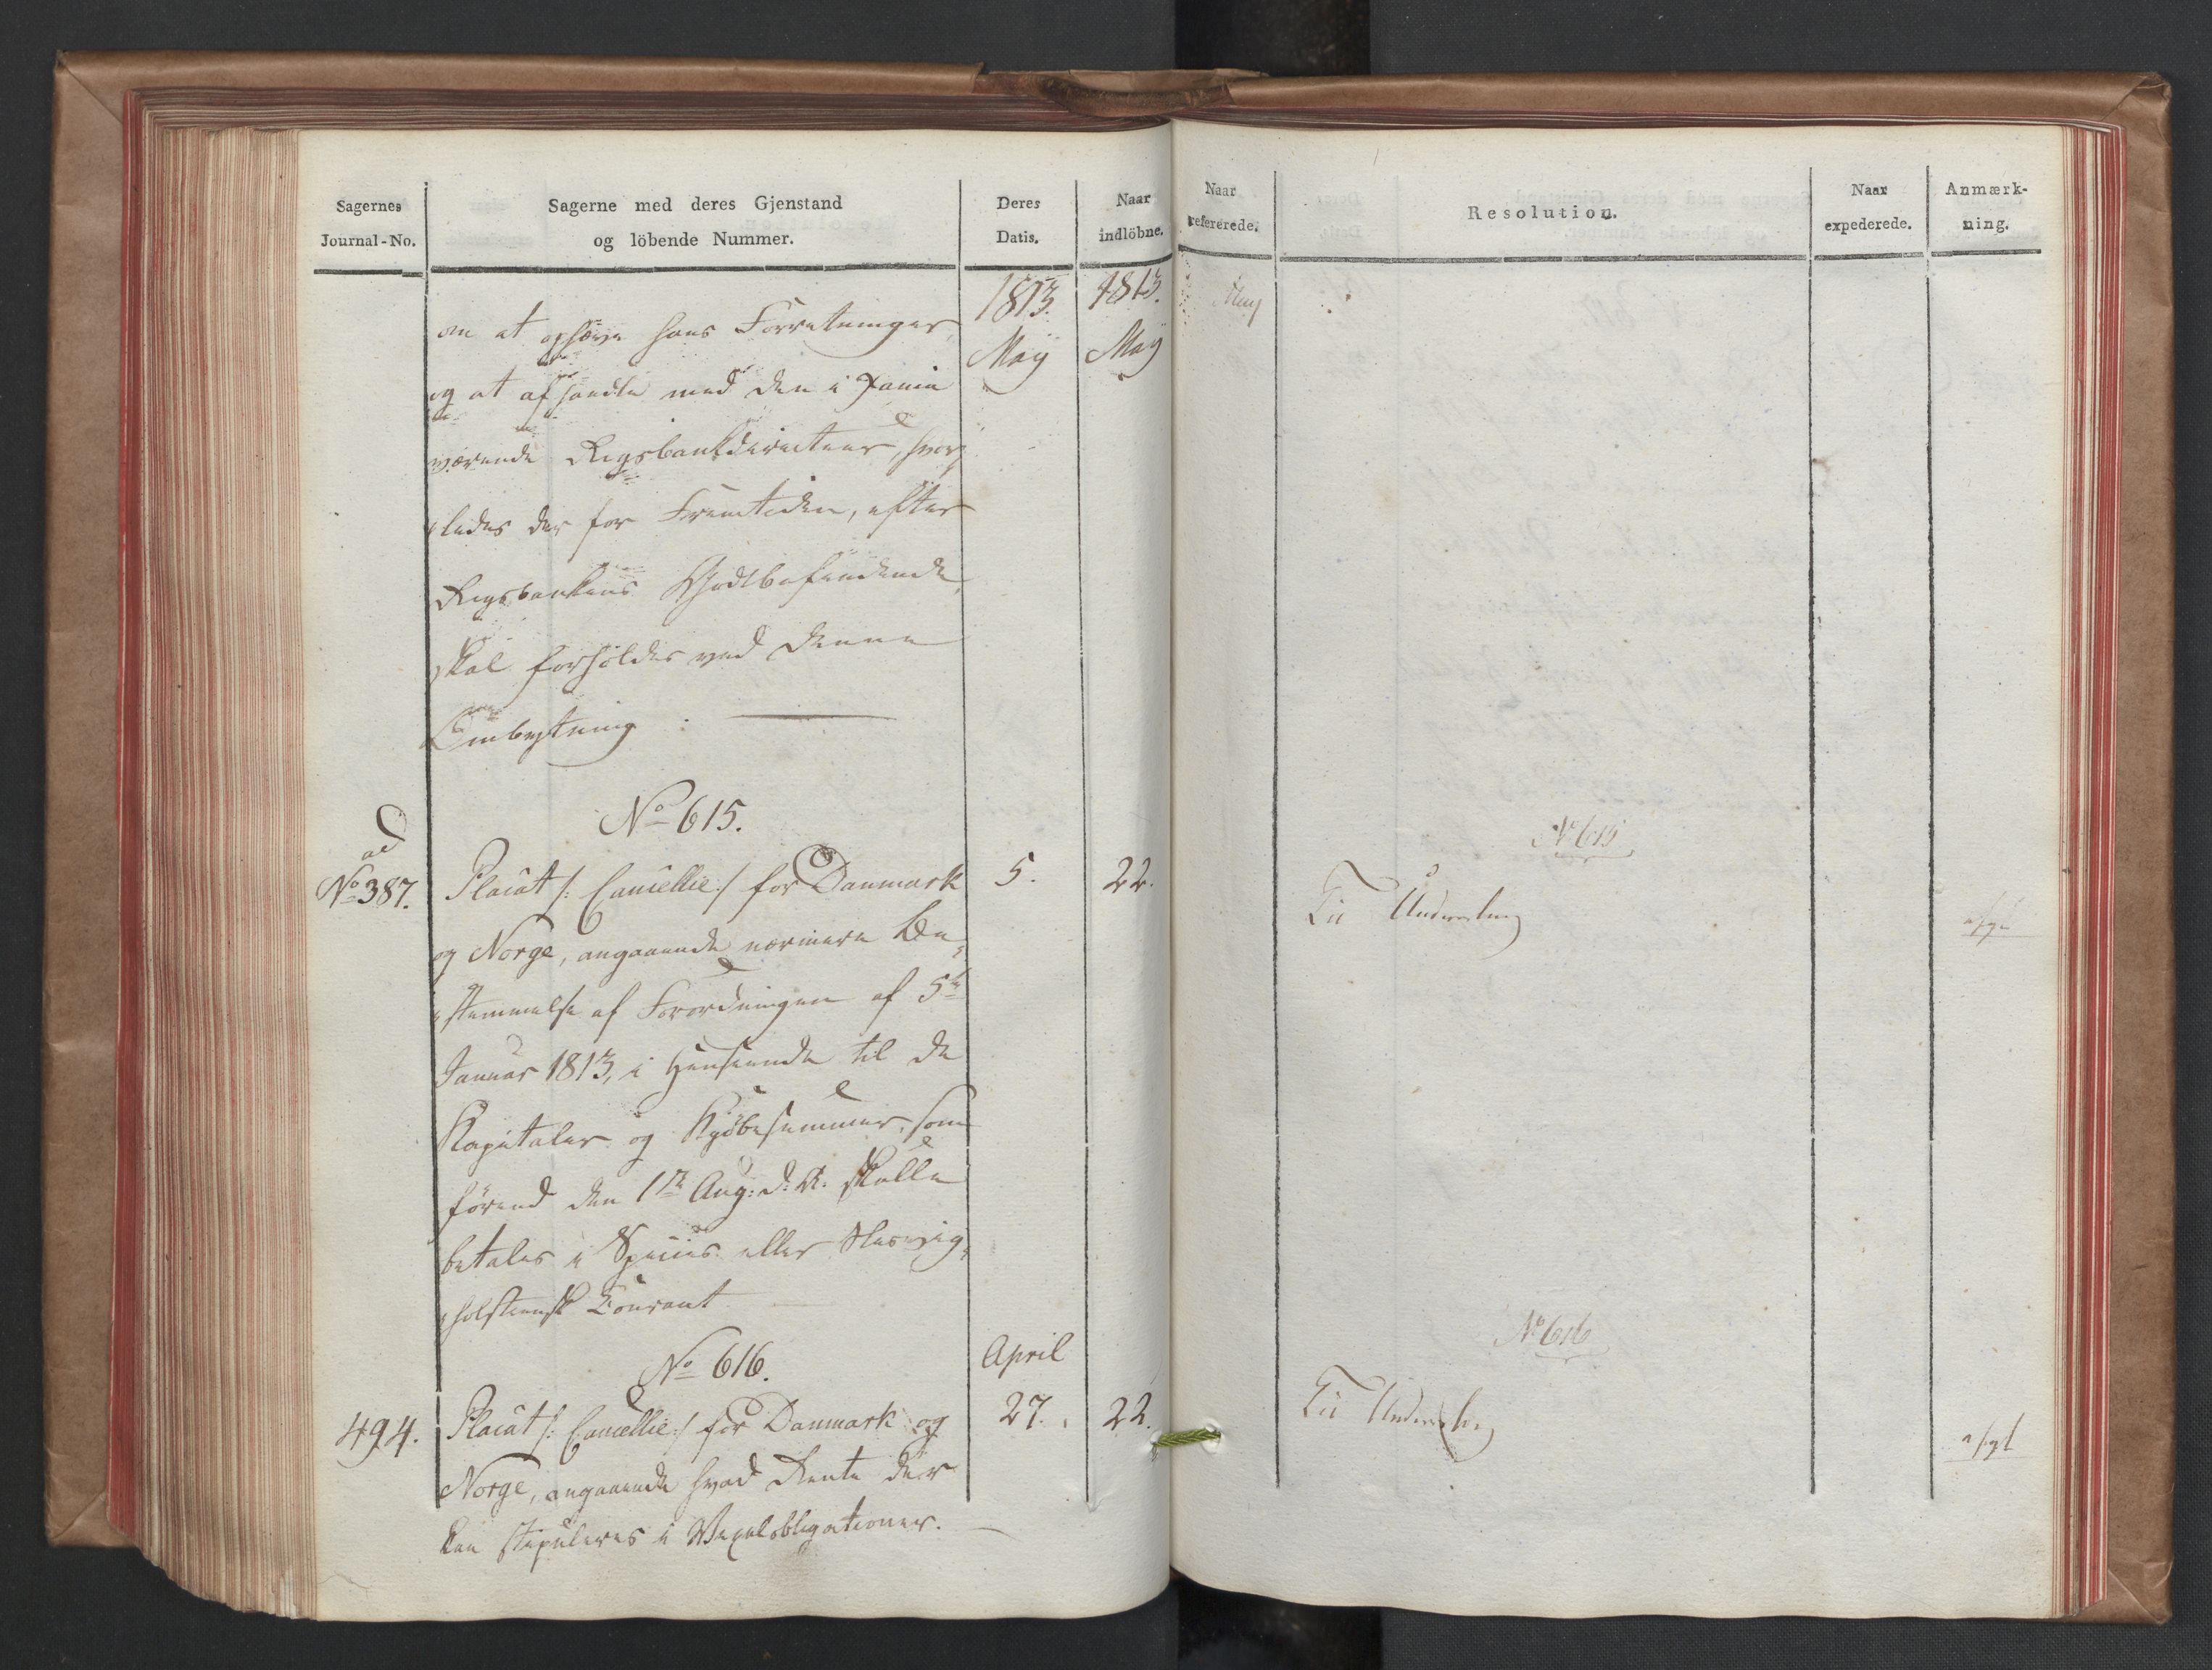 Sagernes
Journal-No.
Sagerne med deres Gjenstand
og löbende Nummer.
Deres
Datis.
Naar
indlöbne.
1813.
May
1813.
May
om at ophøre hans Forretninger
og at afhandle med den i
værende Rigsbankdirecteur, hvor,
,ledes der for Fremtiden, efter
Rigsbankens Godtbefindende,
skal forholdes ved denne
Ombytning :
No 615.
ad
No 387.
Placat /: Cancellie :/ for Danmark
5.
22.
og Norge, angaaende nærmere Be,
,stemmelse af Forordningen af 5te
Januar 1813, i Henseende til de
Kapitaler og Kjøbesummer, som
førend den 1te Aug: d: A: skulle
betales i Species eller Slesvig,
,holsteensk Courant
No 616.
April
494.
Placat /: Cancellie :/ for Danmark og
27.
22.
Norge, angaaende hvad Rente der
kan stipuleres i Vexelobligationer.
Naar
refererede.
Resolution.
Naar
expederede.
Anmærk-
ning.
May
No 615
Til Underretning
No 616
Til Underretning